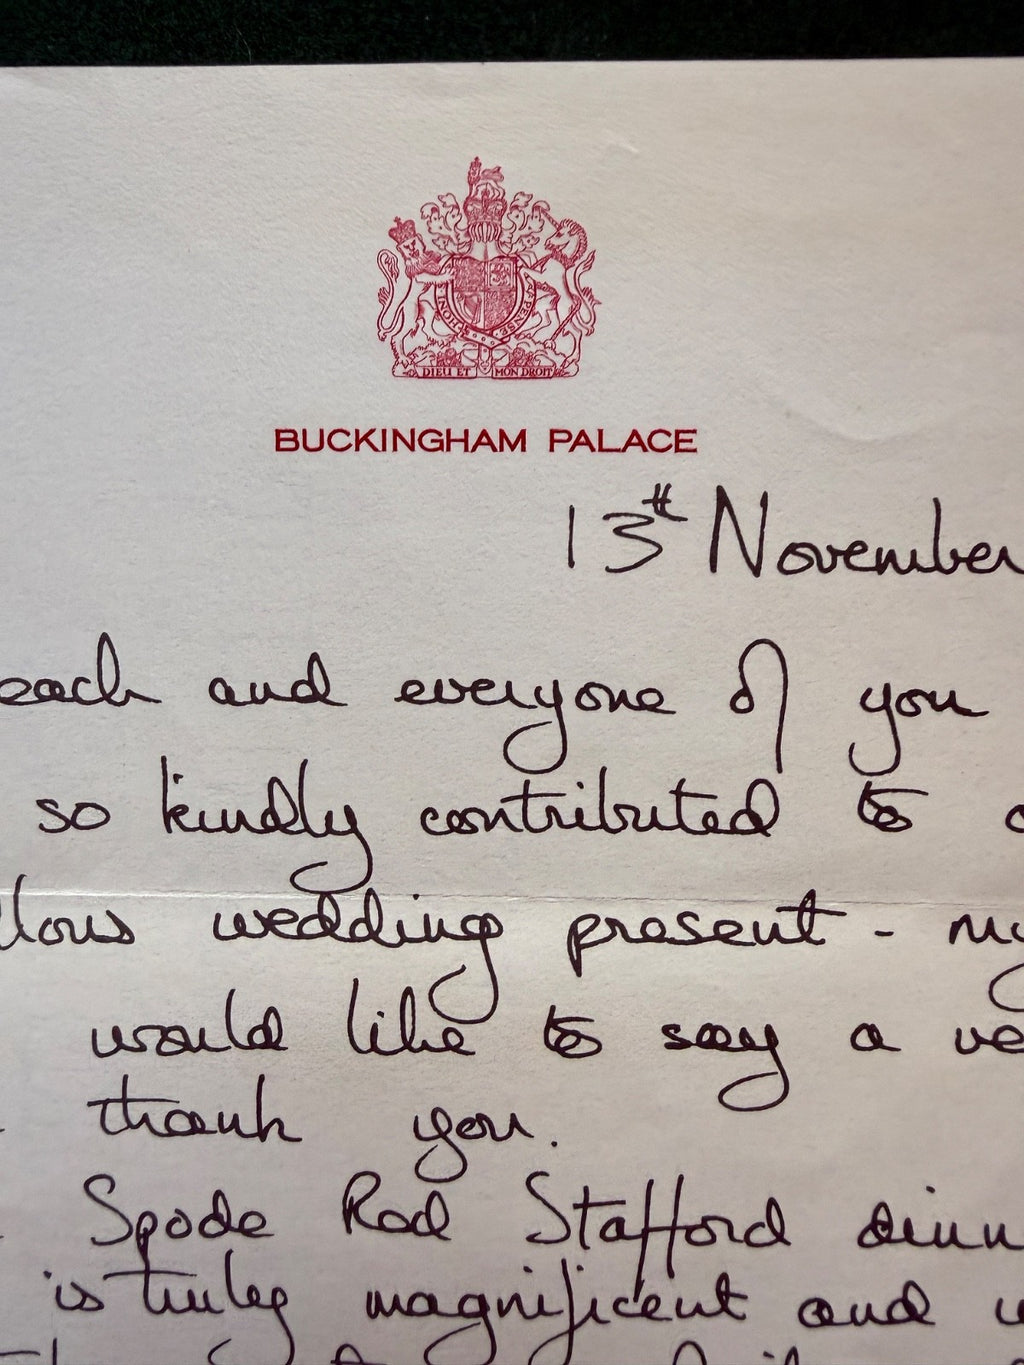 HONI
PENSE
DIEU ET MON DROIT
BUCKINGHAM PALACE
13th November
each and everyone of you
so kindly contributed to
wedding present -
would like to say a
thank you.
Spode Red Stafford
is truly magnificent and